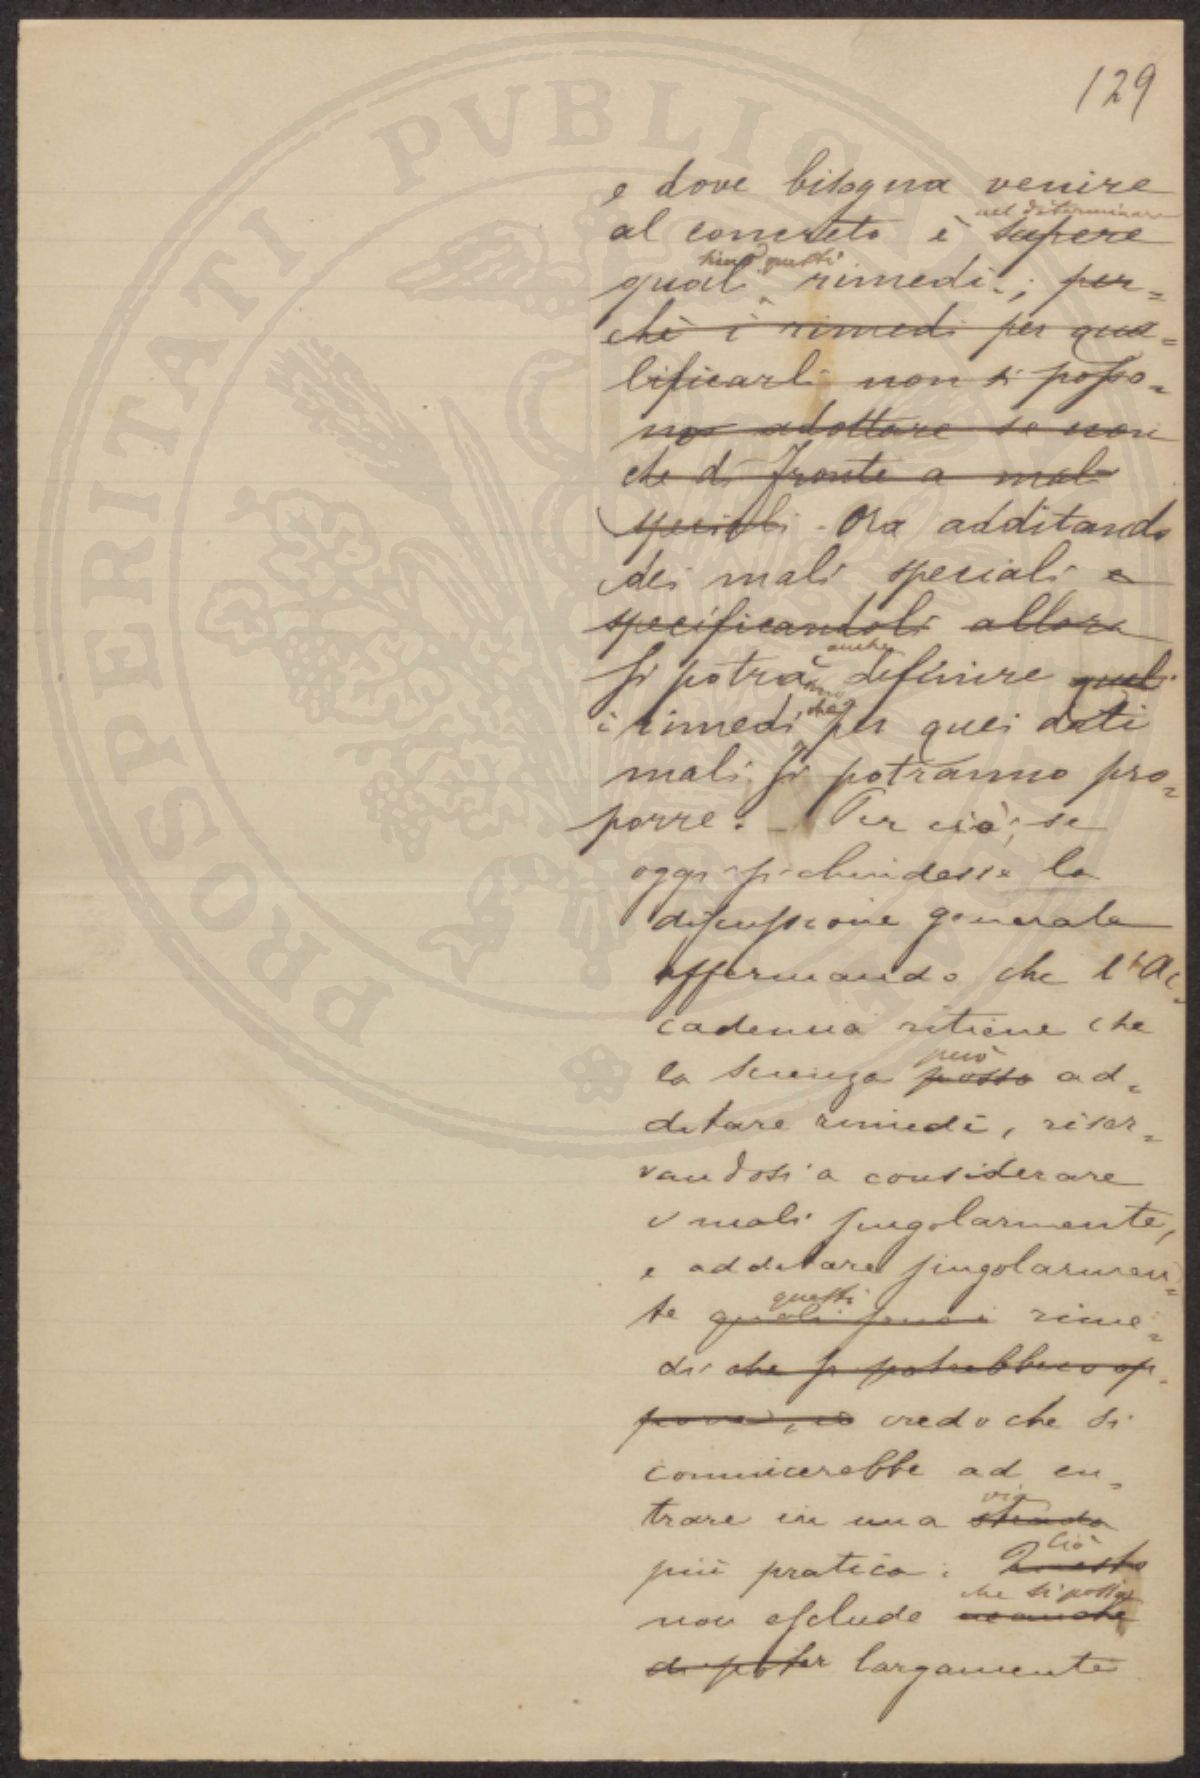 129
e dove bisogna venire
nel determinare
al concreto è sapere
sieno questi
quali rimedi; per=
chè i rimedi per qua=
lificarli non si posso=
no adottare se non
che di fronte a mali
speciali. Ora additando
dei mali speciali e
specificandoli allora
anche
si potrà definire quali
i rimedi, che per quei dati
mali si potranno pro=
porre. – Per ciò, se
oggi si chiudesse la
discussione generale
affermando che l'Ac=
cademia ritiene che
può
la scienza possa ad=
ditare rimedi, riser=
vandosi a considerare
i mali singolarmente,
e additare singolarmen=
questi
te quali sieno i rime=
di che si potrebbero op=
porre, io credo che si
comincerebbe ad en=
via
trare in una strada
Ciò
più pratica. Questo
che si possa
non esclude neanche
di poter largamente
PROSPERITATI PVBLICAE